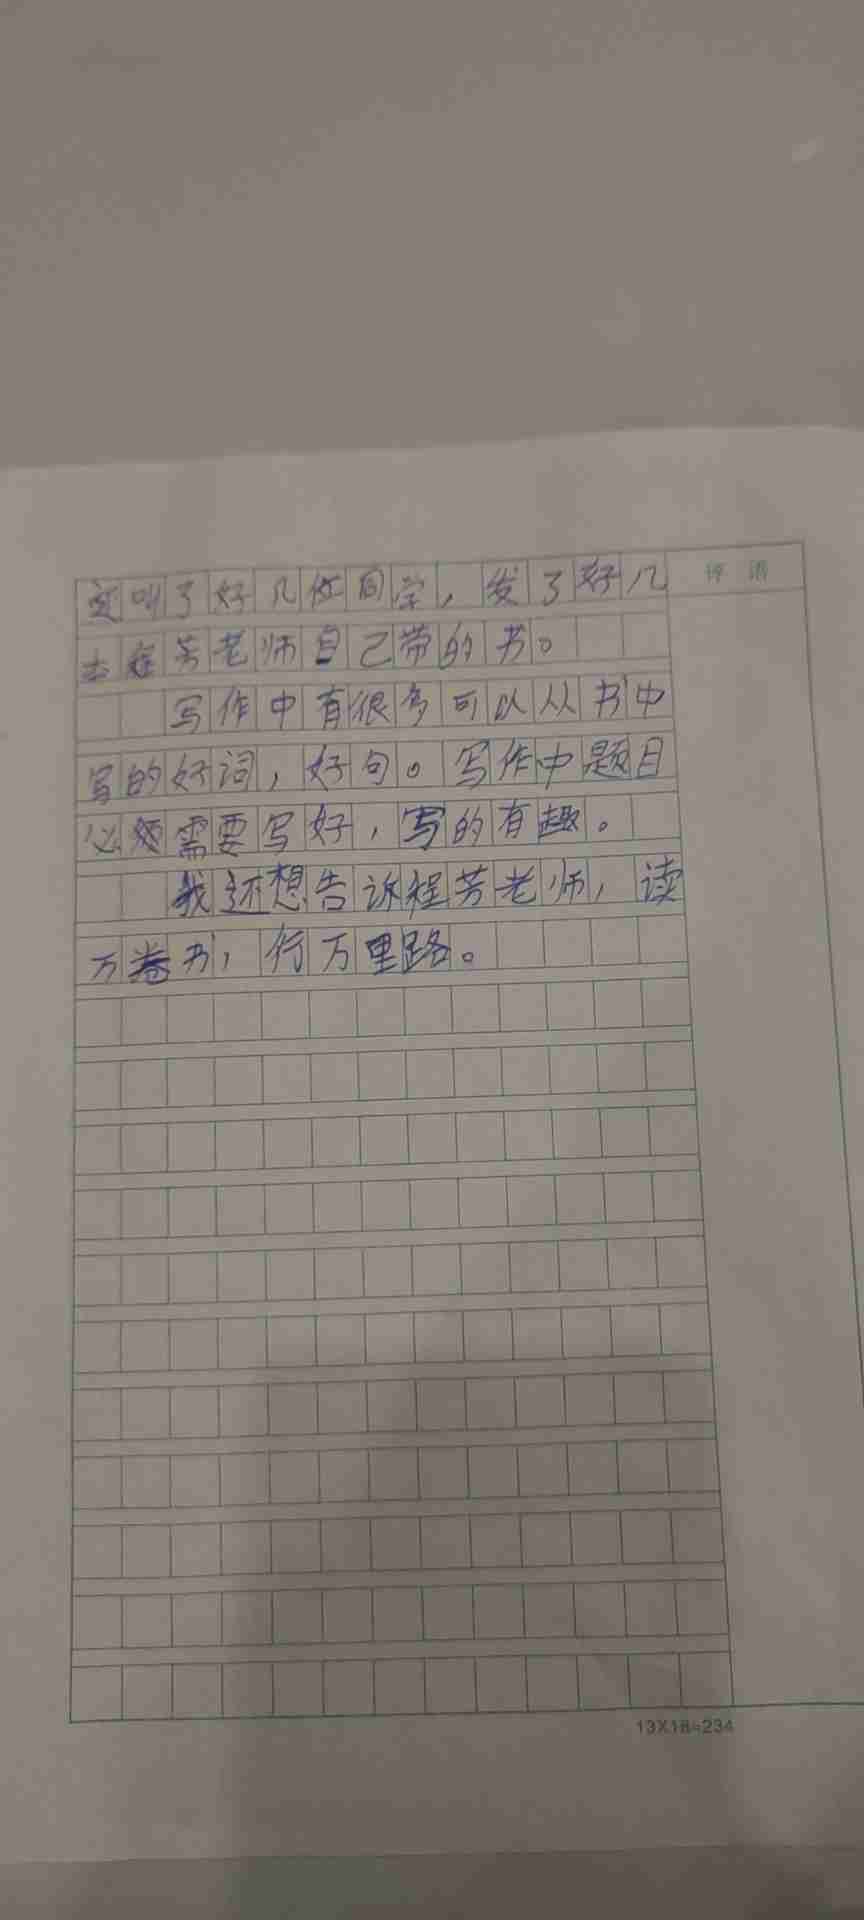 叫了好几位同学，发了好几
本程芳老师自己带的书。
写作中有很多可以从书中
写的好词，好句。写作中题目
必须需要写好，写的有趣。
我还想告诉程芳老师，读
万卷书，行万里路。
评语
13X18=234